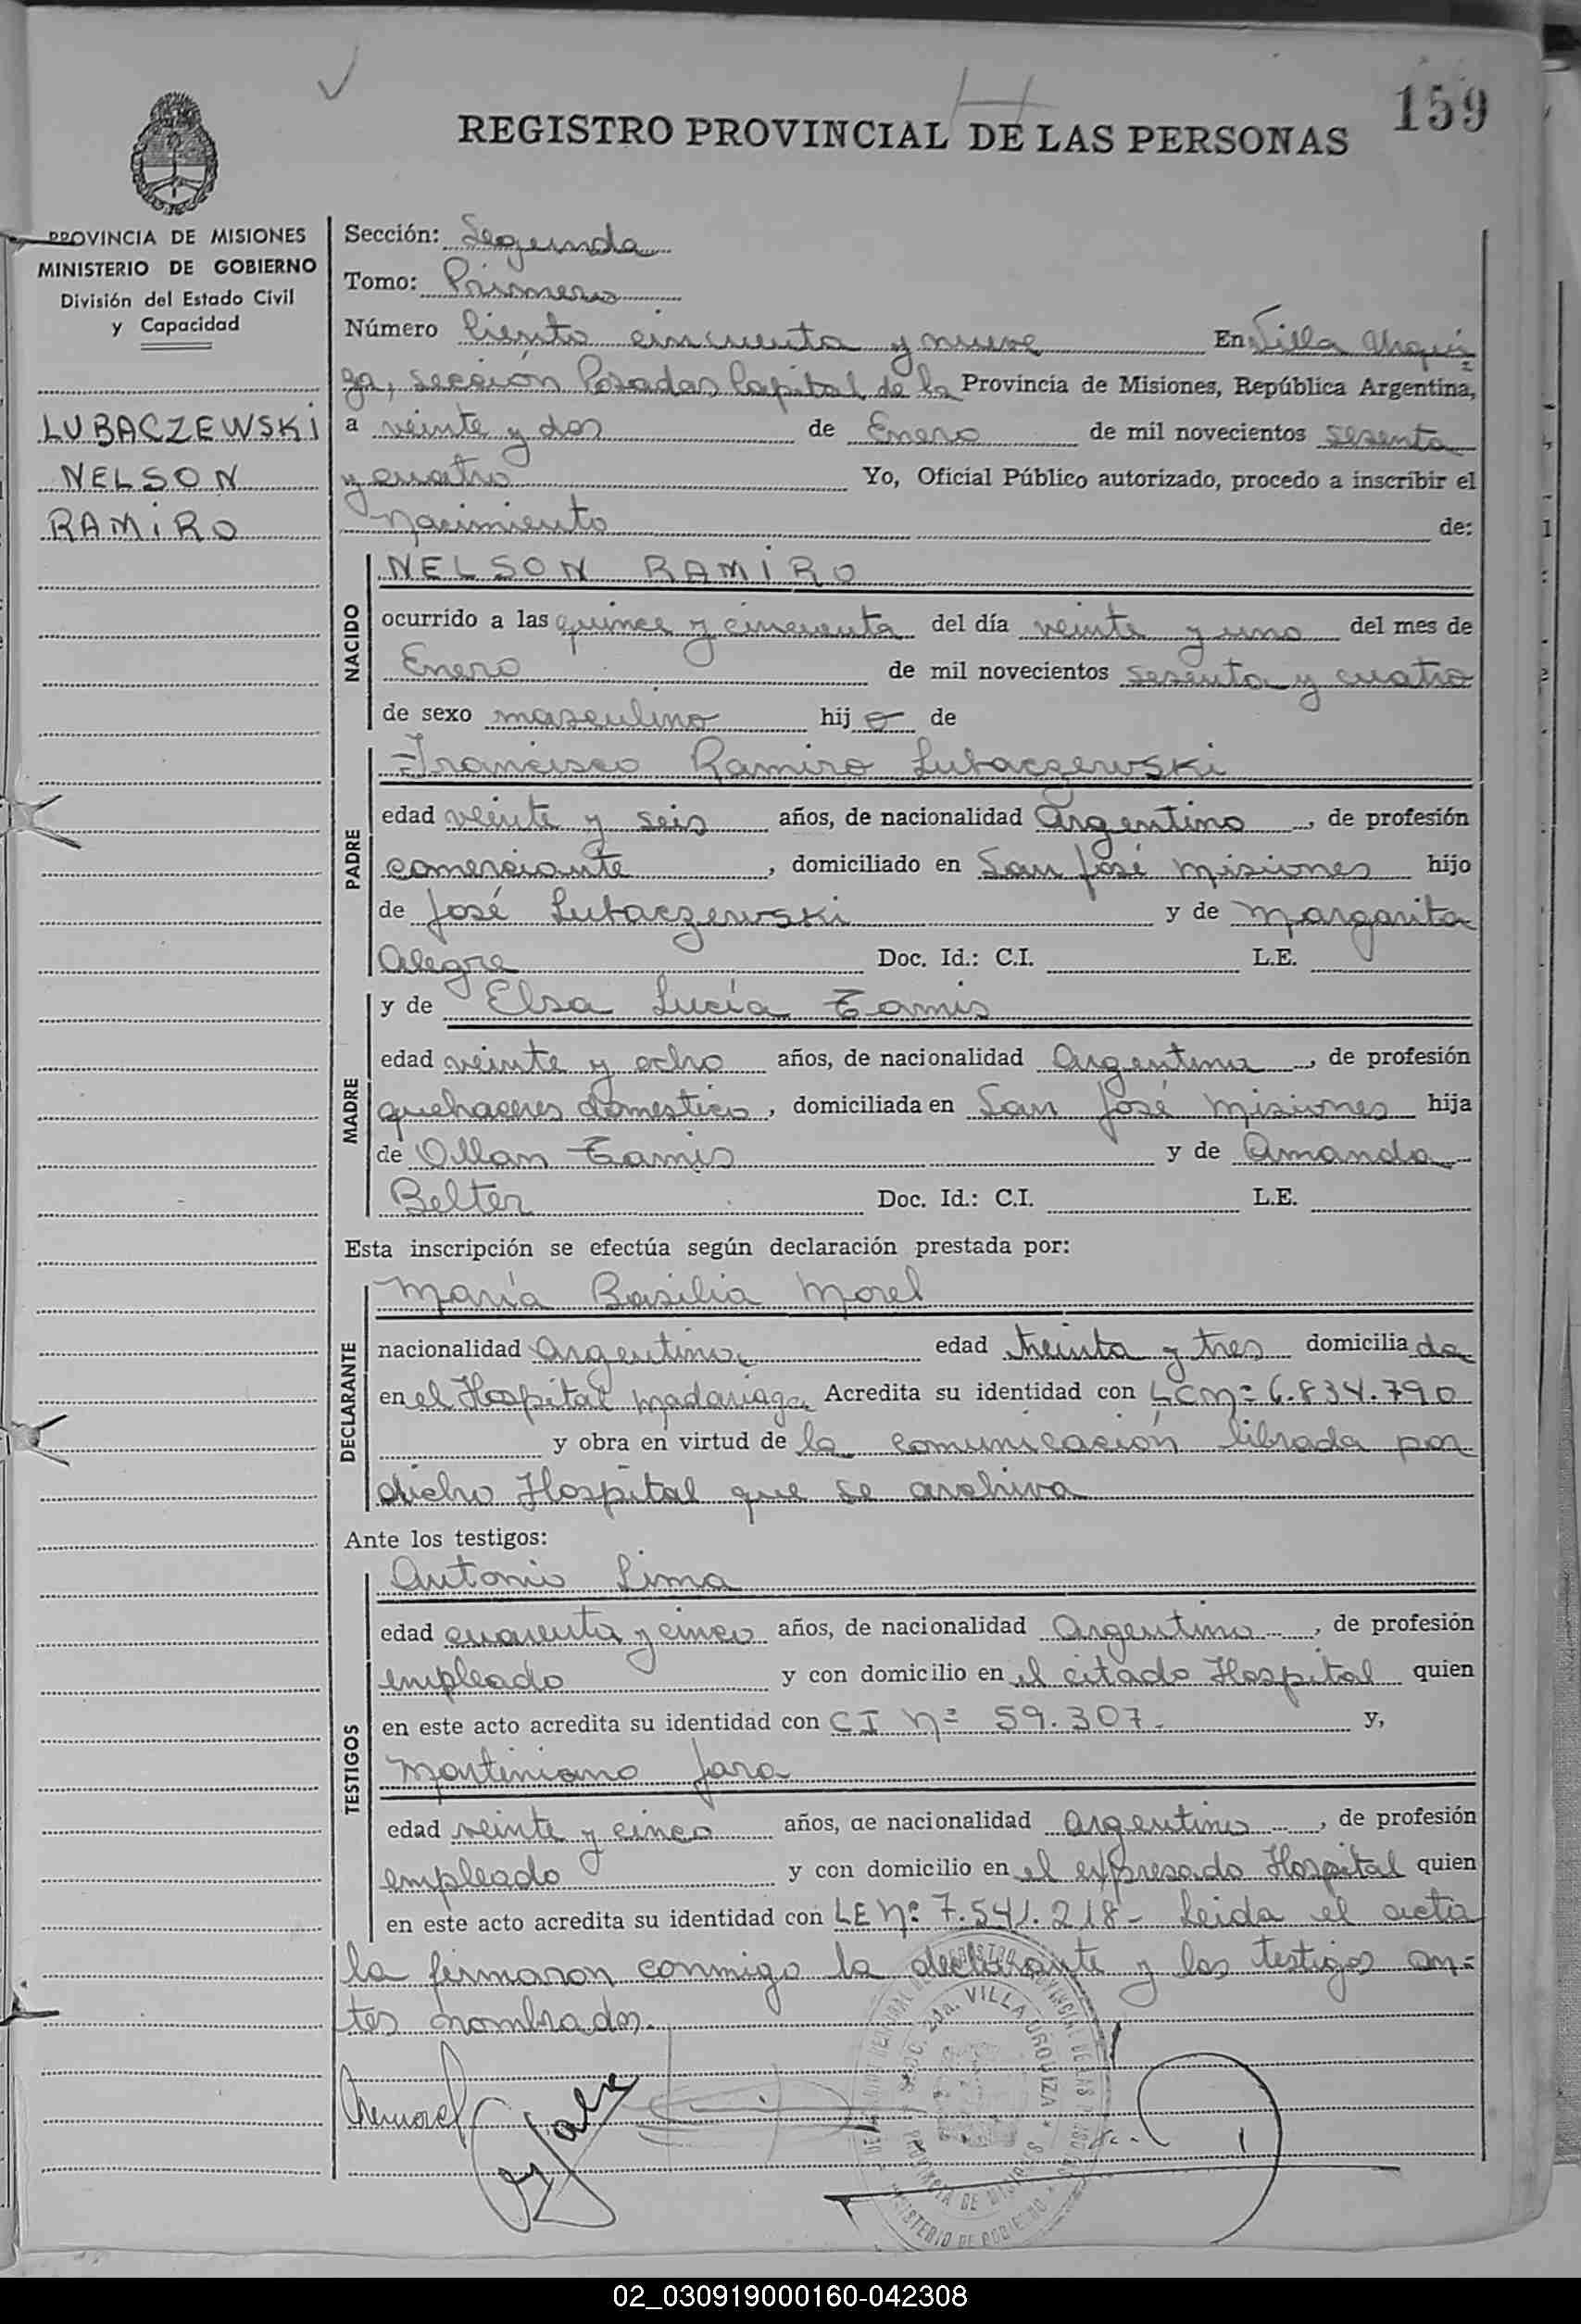 159
REGISTRO PROVINCIAL DE LAS PERSONAS
PROVINCIA DE MISIONES
MINISTERIO DE GOBIERNO
División del Estado Civil
y Capacidad
LUBACZEWSKI
NELSON
RAMIRO
Sección: Segunda
Tomo: Primero
Número Ciento cincuenta y nueve En Villa Urqui
za, sección Posadas Capital de la Provincia de Misiones, República Argentina,
a veinte y dos de Enero de mil novecientos sesenta
y cuatro Yo, Oficial Público autorizado, procedo a inscribir el
Nacimiento de:
NACIDO
NELSON RAMIRO
ocurrido a las quince y cincuenta del día veinte y uno del mes de
Enero de mil novecientos sesenta y cuatro
de sexo masculino hijo de
PADRE
Francisco Ramiro Lubaczewski
edad veinte y seis años, de nacionalidad Argentino, de profesión
comerciante, domiciliado en San José Misiones hijo
de José Lubaczewski y de Margarita
Alegre Doc. Id.: C.I. L.E.
MADRE
y de Elsa Lucía Tamis
edad veinte y ocho años, de nacionalidad Argentina, de profesión
quehaceres domestico, domiciliada en San José Misiones hija
de Ollan Tamis y de Amanda
Belter Doc. Id.: C.I. L.E.
Esta inscripción se efectúa según declaración prestada por:
DECLARANTE
María Basilia Morel
nacionalidad Argentina edad treinta y tres domiciliada
en el Hospital Madariaga Acredita su identidad con LC Nº 6.834.790
y obra en virtud de la comunicación librada por
dicho Hospital que se archiva
Ante los testigos:
TESTIGOS
Antonio Lima
edad cuarenta y cinco años, de nacionalidad Argentino, de profesión
empleado y con domicilio en el citado Hospital quien
en este acto acredita su identidad con CI Nº 59.307. y,
Martiniano Jara
edad veinte y cinco años, de nacionalidad Argentino, de profesión
empleado y con domicilio en el expresado Hospital quien
en este acto acredita su identidad con LE Nº 7.541.218- Leida el acta
la firmaron conmigo la declarante y los testigos an=
tes nombrados.
VILLA URQUIZA
PROVINCIA DE MISIONES
MINISTERIO DE GOBIERNO
02_030919000160-042308